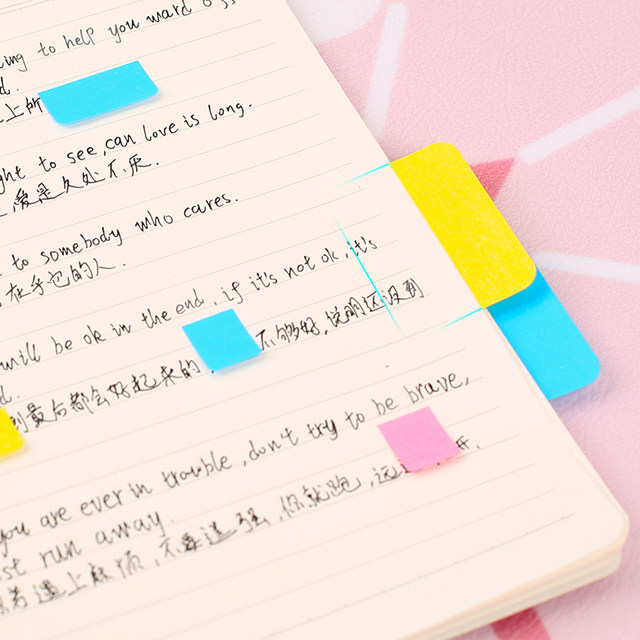 ing to help you ward off
d.
上所
ght to see, can love is long.
爱是久处不厌.
to somebody who cares.
在乎它的人.
will be ok in the end. if it's not ok, it's
d.
到最后都会好起来的, 不够好, 说明还没到
you are ever in trouble, don't try to be brave,
st run away.
若遇上麻烦, 不要逞强, 你就跑, 远 开.